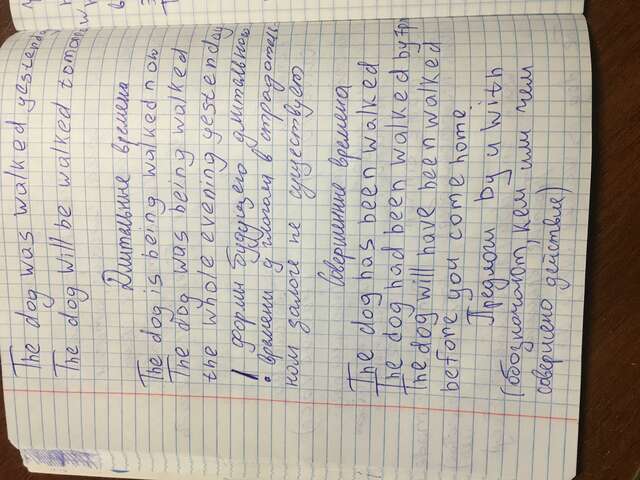 The dog was walked yesterday
The dog will be walked tomorrow
Длительные времена
The dog is being walked now
The dog was being walked
the whole evening yesterday
! формы будущего длительного
времени у глагола в страдатель-
ном залоге не существует
Совершенные времена
The dog has been walked
The dog had been walked by 7pm
The dog will have been walked
before you come home
Предлоги by и with
(обозначают, кем или чем
совершено действие)